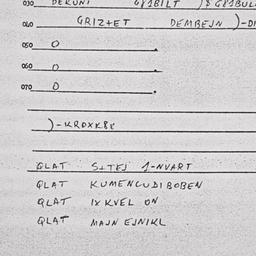 030 DEKUNI G81BILT
040 GRIZ+ET DEMBEJN )-D
050 O
060 O
070 O
)-KROXK8X
QLAT S+TEJ 1-NVART
QLAT KUMENCUDIBOBEN
QLAT IXKVEL ON
QLAT MAJN EJNIKL